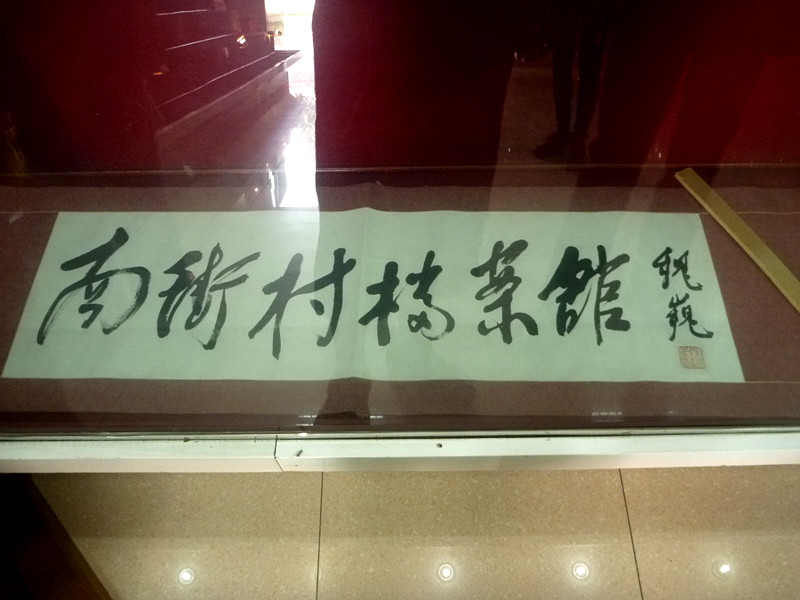 南街村档案馆
魏巍